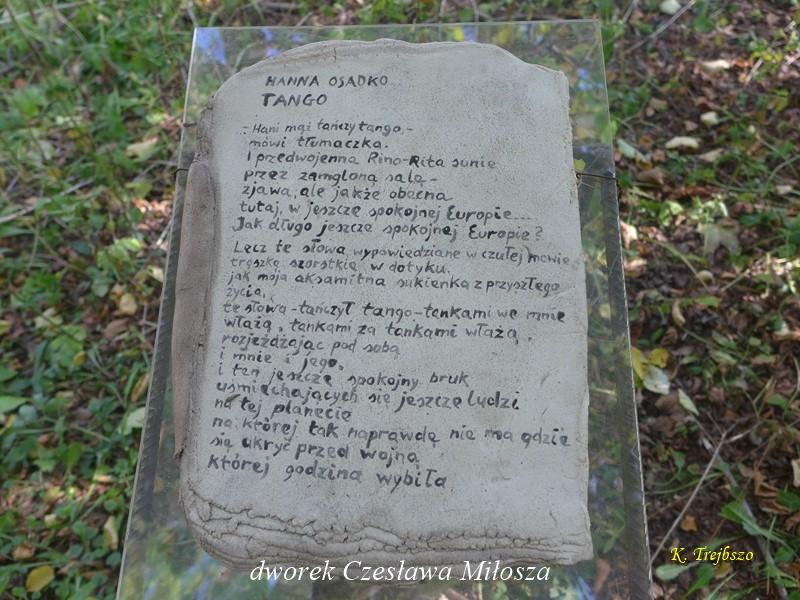 HANNA OSADKO
TANGO
- Hani mąż tańczy tango, -
mówi tłumaczka.
I przedwojenna Rino-Rita sunie
przez zamgloną salę -
zjawa, ale jakże obecna
tutaj, w jeszcze spokojnej Europie...
Jak długo jeszcze spokojnej Europie?
Lecz te słowa, wypowiedziane w czułej mowie
troszkę szorstkie w dotyku,
jak moja aksamitna sukienka z przyszłego
życia,
te słowa - tańczył tango - tankami we mnie
włażą, tankami za tankami włażą,
rozjeżdżając pod sobą
i mnie i jego,
i ten jeszcze spokojny bruk
uśmiechających się jeszcze ludzi
na tej planecie
na której tak naprawdę nie ma gdzie
się ukryć przed wojną
której godzina wybiła
dworek Czesława Miłosza
K. Trejbszo